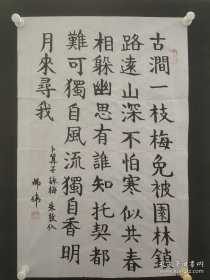 古澗一枝梅免被園林鎖
路遠山深不怕寒似共春
相躲幽思有誰知托契都
難可獨自風流獨自香明
月來尋我
卜算子詠梅 朱敦